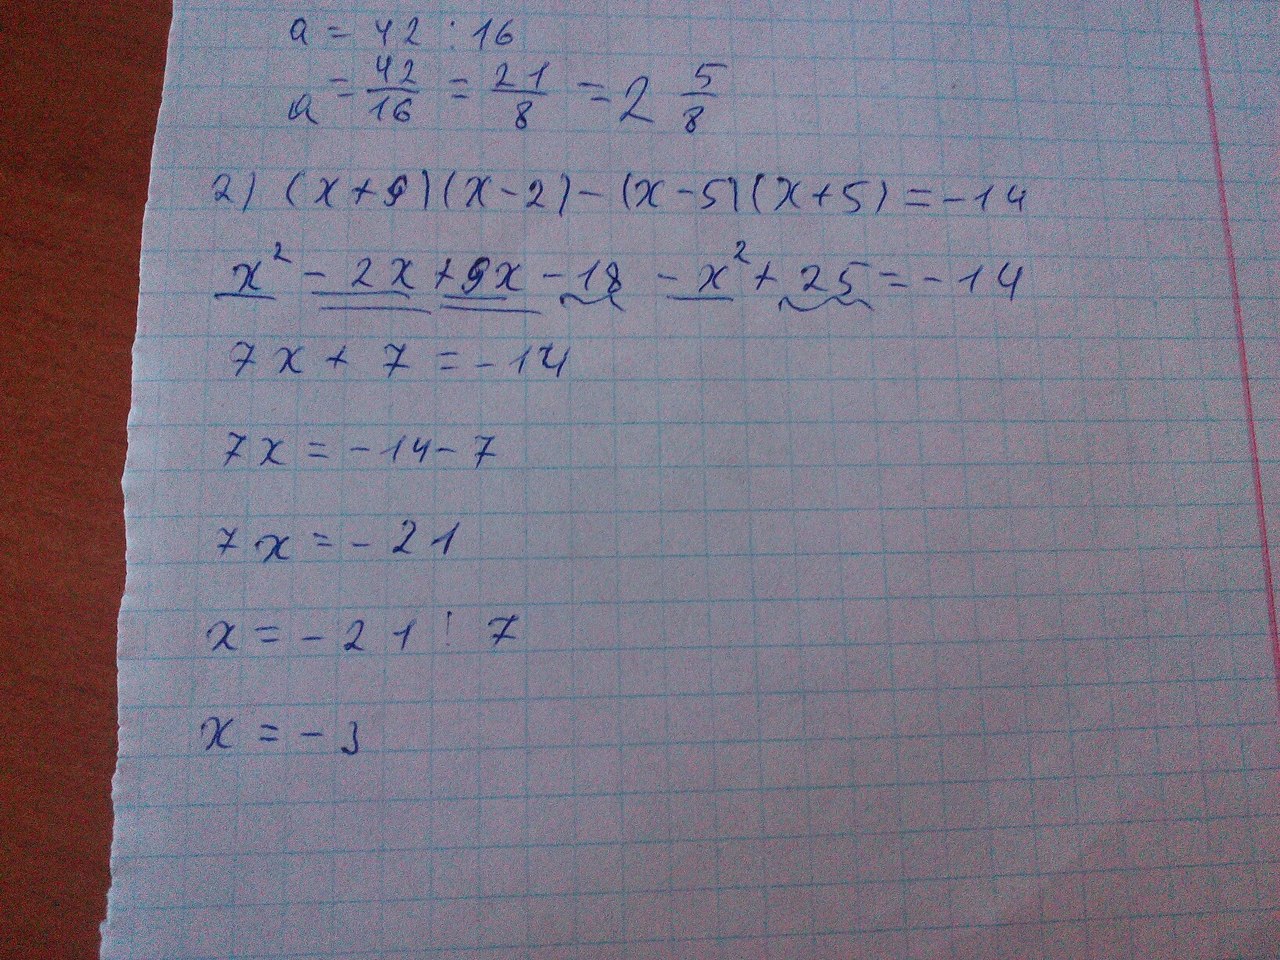 a = 42 : 16
a = 42/16 = 21/8 = 2 5/8
2) (x+9)(x-2)-(x-5)(x+5)=-14
x² - 2x + 9x - 18 - x² + 25 = -14
7x + 7 = -14
7x = -14-7
7x = -21
x = -21 : 7
x = -3